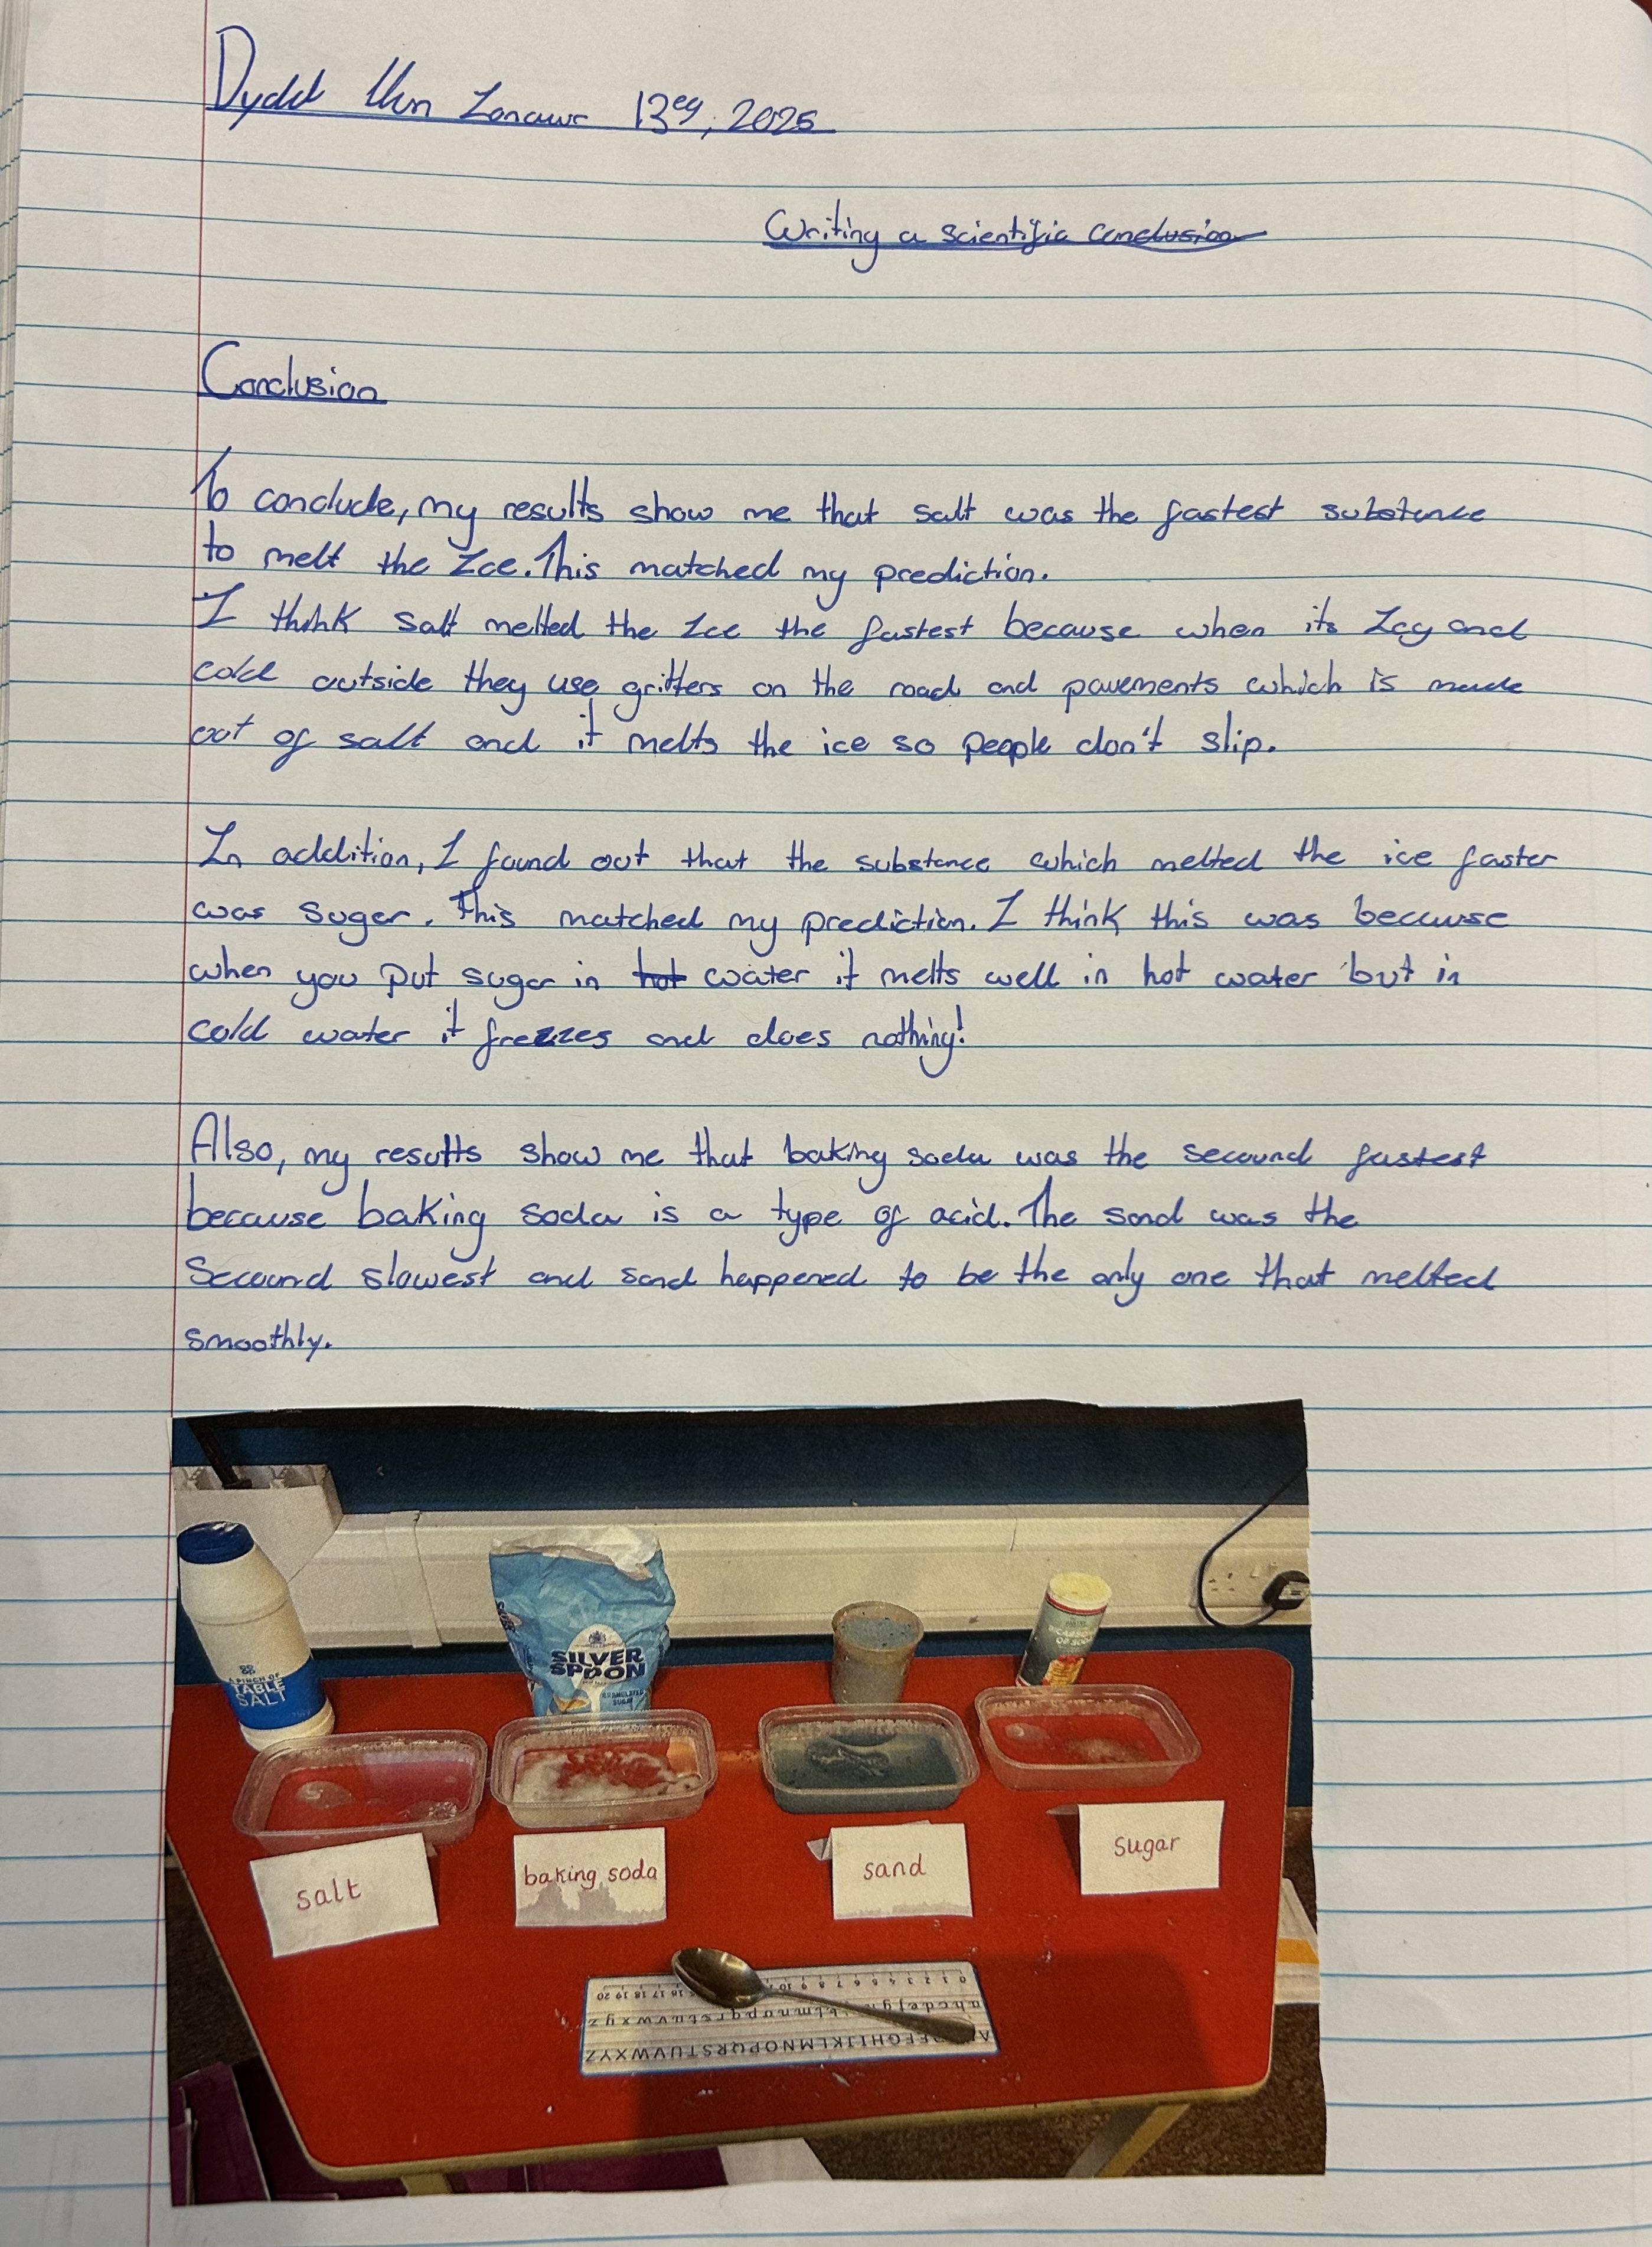 Dydd Llun Ionawr 13eg, 2025
Writing a scientific conclusion
Conclusion
To conclude, my results show me that salt was the fastest substence
to melt the Ice. This matched my prediction.
I think salt melted the Ice the fastest because when its Icy and
cold outside they use gritters on the road and pavements which is made
out of salt and it melts the ice so people don't slip.
In addition, I found out that the substance which melted the ice faster
was sugar. This matched my prediction. I think this was because
when you put sugar in hot water it melts well in hot water but in
cold water it freezes and does nothing!
Also, my results show me that baking soda was the secound fastest
because baking soda is a type of acid. The sand was the
Secound slowest and sand happened to be the only one that melted
smoothly.
A PINCH OF
TABLE
SALT
SILVER
SPOON
GRANULATED
SUGAR
BICARBONATE
OF SODA
salt
baking soda
sand
sugar
0 1 2 3 4 5 6 7 8 9 10 16 17 18 19 20
abcdefg klmnopqrstuvwxyz
A EFGHIJKLMNOPQRSTUVWXYZ